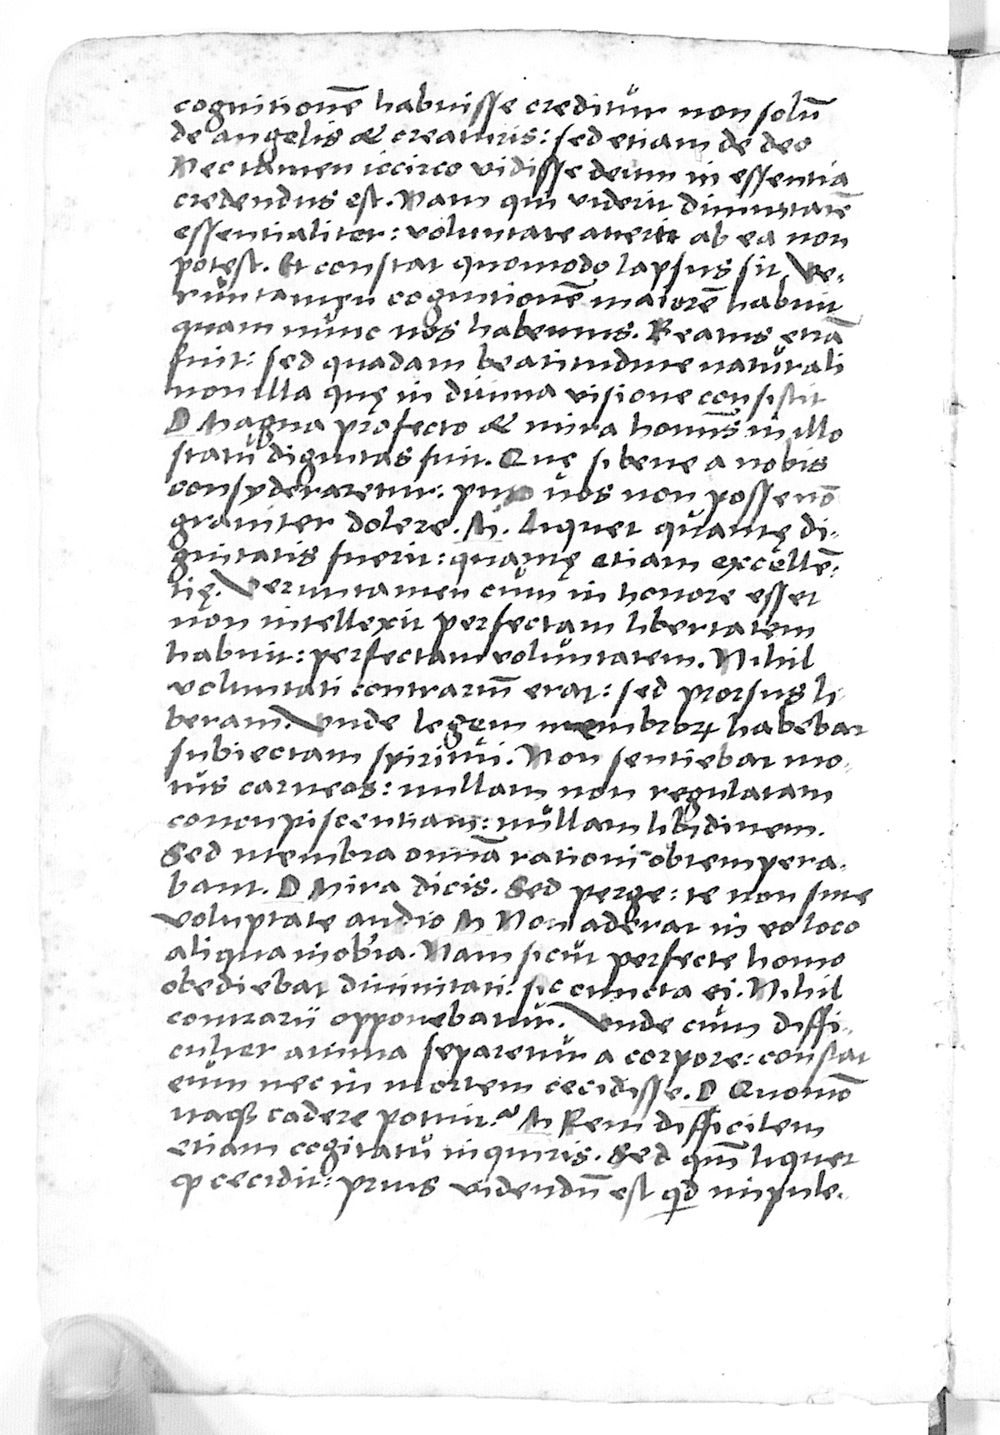 cognitionē habuisse creditur non solū
de angelis & creaturis: sed etiam de deo
Nec tamen iccirco vidisse deum in essentia
credendus est. Nam qui viderit diuinitatē
essentialiter: voluntate auerti ab ea non
potest. Et constat quomodo lapsus sit. Ve-
runtamen cognitionē maiorē habuit
quam nunc nos habemus. Beatus etiā
fuit: sed quadam beatitudine naturali
non illa quę in diuina visione consistit
D Magna profecto & mira hominis in illo
statu dignitas fuit. Quę si bene a nobis
consyderaretur: puto nos non posse nō
grauiter dolere. M. Liquet quantę di-
gnitatis fuerit: quantę etiam excellē-
tię. Veruntamen cum in honore esset
non intellexit perfectam libertatem
habuit: perfectam voluntatem. Nihil
voluntati contrariū erat: sed prorsus li-
beram. Vnde legem membroꝝ habebat
subiectam spiritui. Non sentiebat mo-
tus carneos: nullam non regulatam
concupiscentiam: nullam libidinem.
Sed membra omnia rationi obtempera-
bant. D Mira dicis. Sed perge: te non sine
voluptate audio M Non aderat in eo loco
aliqua inobia. Nam sicut perfecte homo
obediebat diuinitati: sic cuncta ei. Nihil
contrarii opponebatur. Vnde cum diffi-
culter anima separetur a corpore: constat
eum nec in mortem cecidisse. D Quomō
itaqꝫ cadere potuit? M Rem difficilem
etiam cogitatu inquiris. Sed qm̄ liquet
ꝙ cecidit: prius videndū est qd impule-